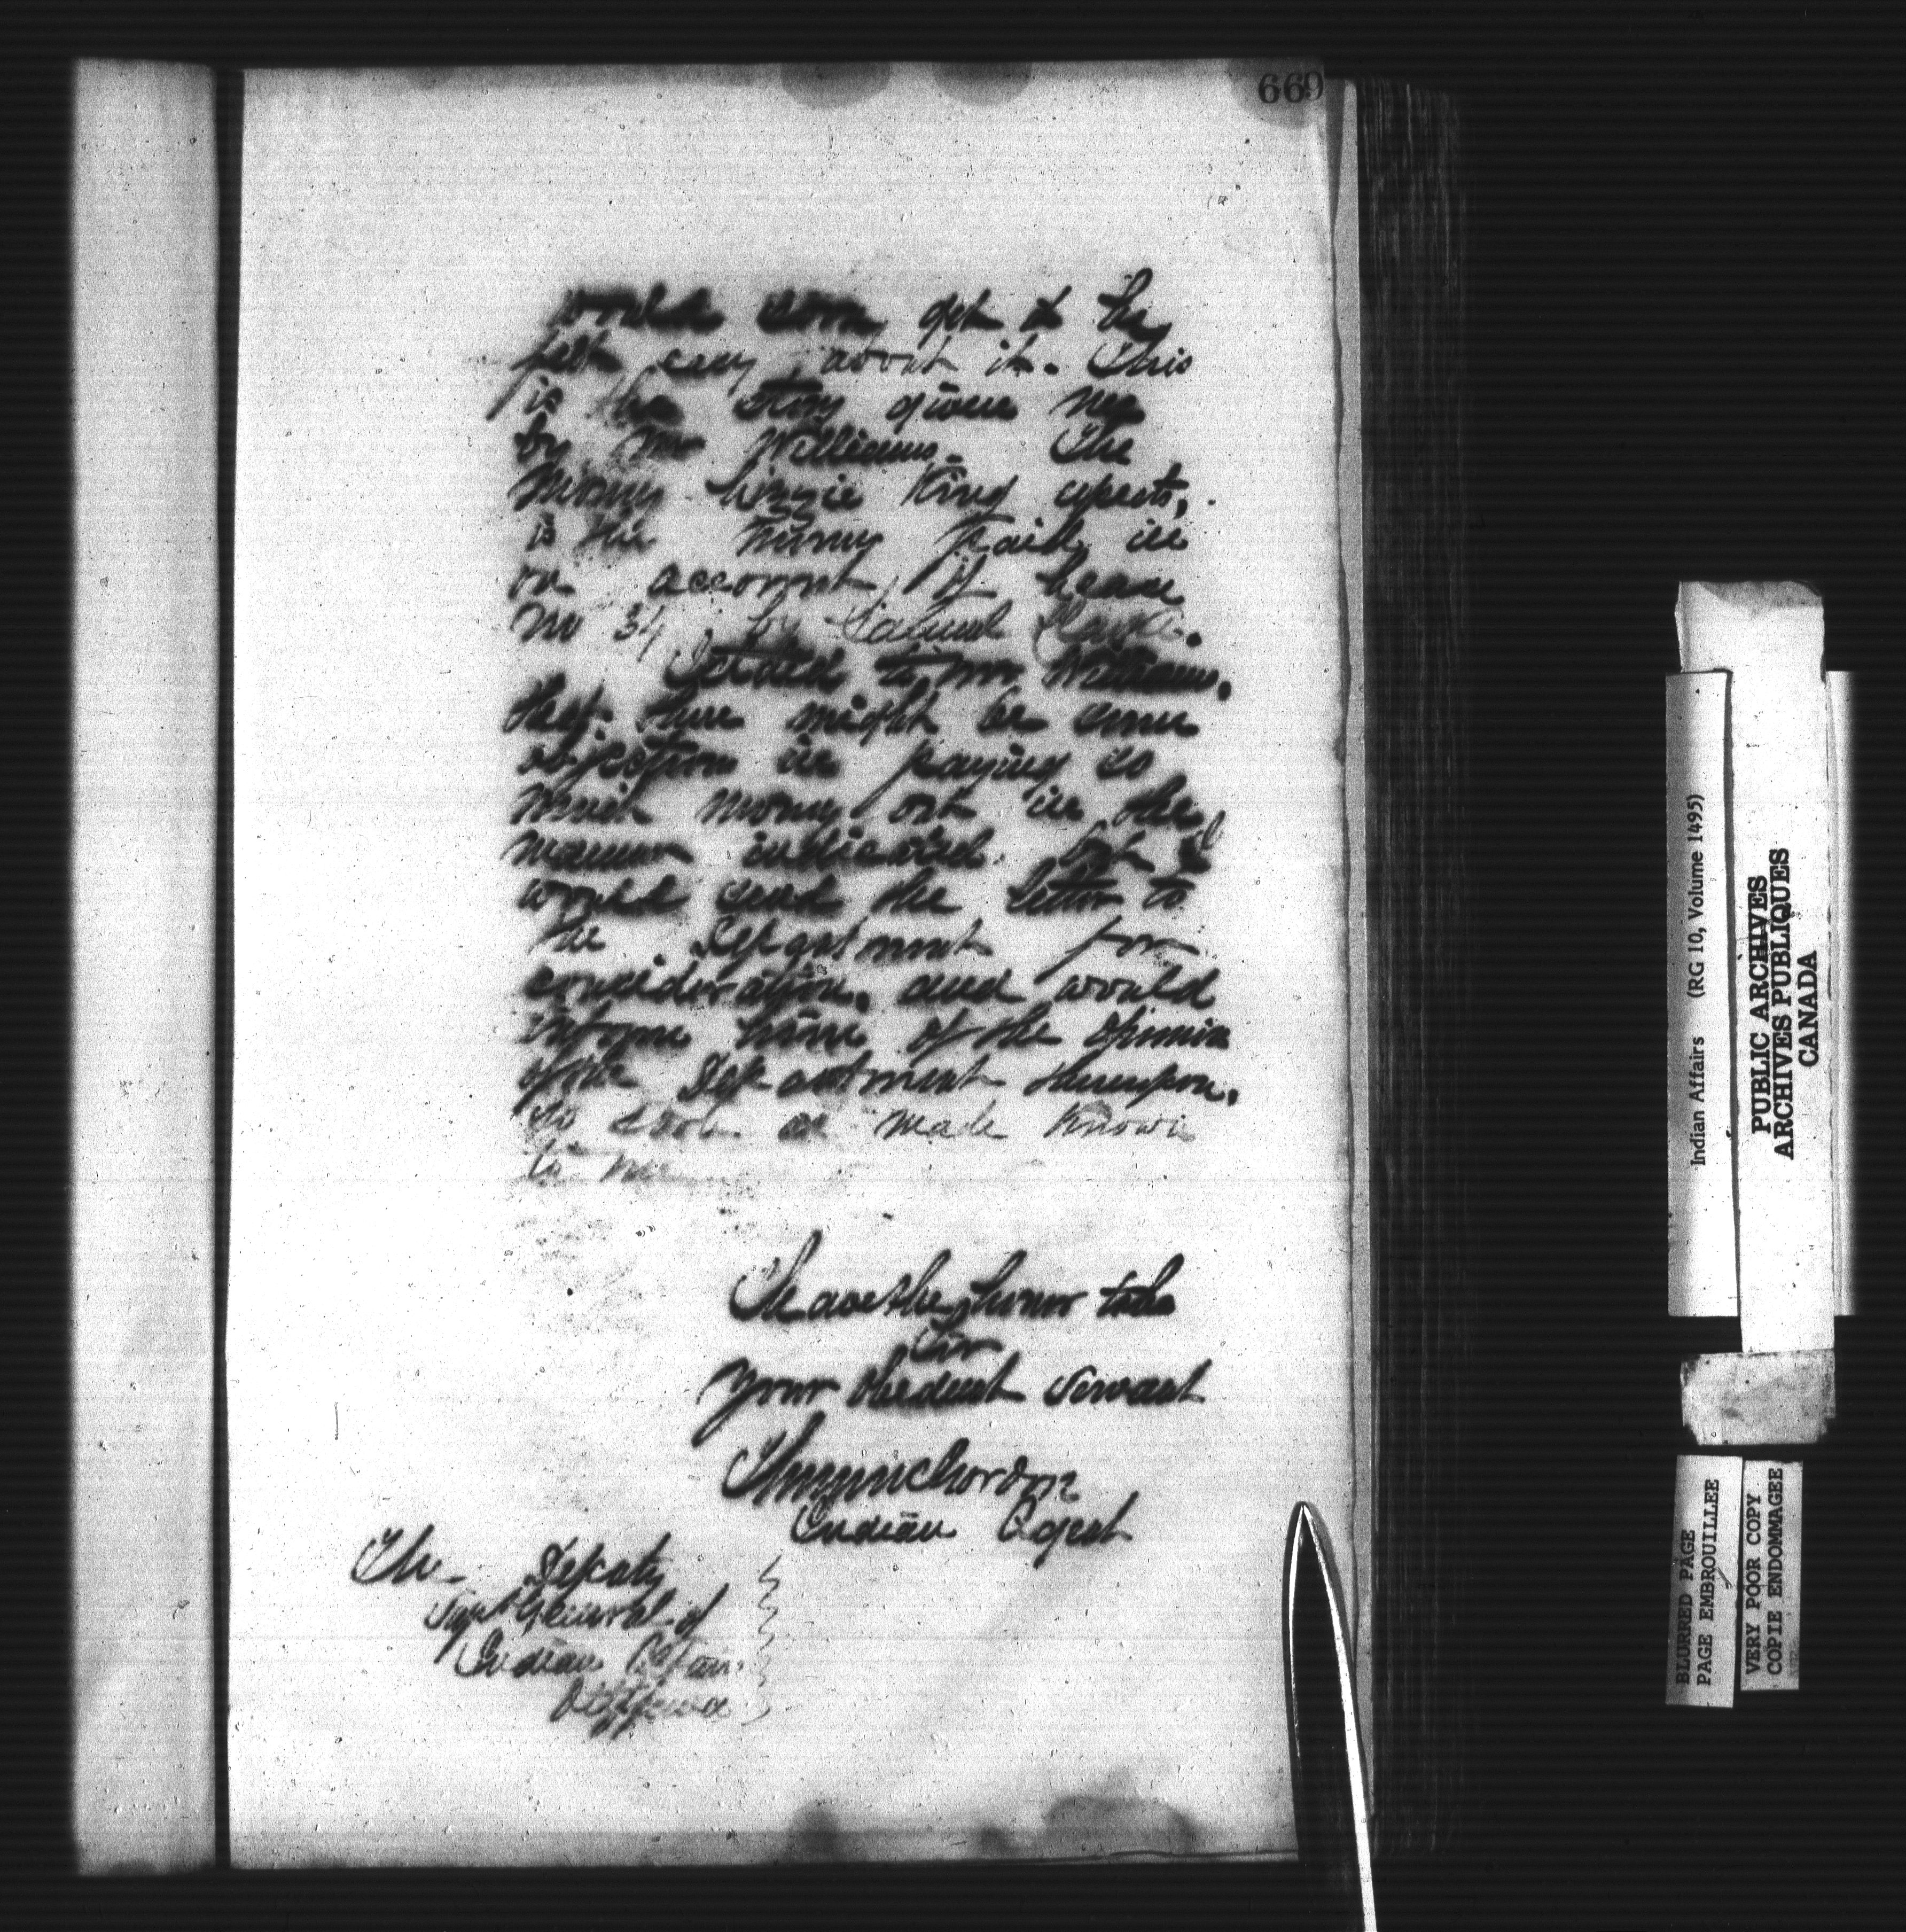 669
would soon get it he
felt easy about it. This
is the story given me
by Mr Williams. The
money Lizzie King expects,
is the money paid in
on account of Lease
No 34 by Samuel
I stated to Mr Williams,
that there might be some
objection in paying so
much money out in the
manner indicated. but I
would send the letter to
the Department for
consideration, and would
inform him of the opinion
of the Department thereupon,
so soon as made known
to me
I have the honor to be
Sir
Your obedient servant
Indian Agent
The Deputy
Supt General of
Indian Affairs
Ottawa
Indian Affairs (RG 10, Volume 1495)
PUBLIC ARCHIVES
ARCHIVES PUBLIQUES
CANADA
BLURRED PAGE
PAGE EMBROUILLEE
VERY POOR COPY
COPIE ENDOMMAGEE